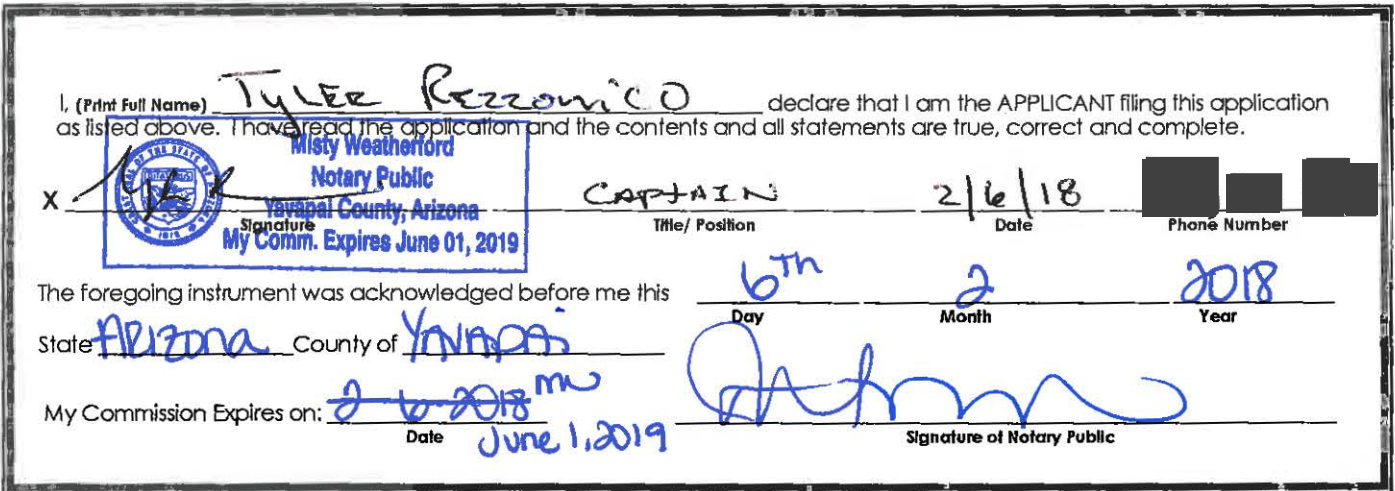 I, (Print Full Name) Tyler Rezzonico declare that I am the APPLICANT filing this application
as listed above. I have read the application and the contents and all statements are true, correct and complete.
Misty Weatherford
Notary Public
Yavapai County, Arizona
My Comm. Expires June 01, 2019
X CAPTAIN 2/6/18
Signature Title/ Position Date Phone Number
The foregoing instrument was acknowledged before me this 6th 2 2018
Day Month Year
State ARIZONA County of YAVAPAi
My Commission Expires on: 2-6-2018 mw
June 1, 2019
Date Signature of Notary Public